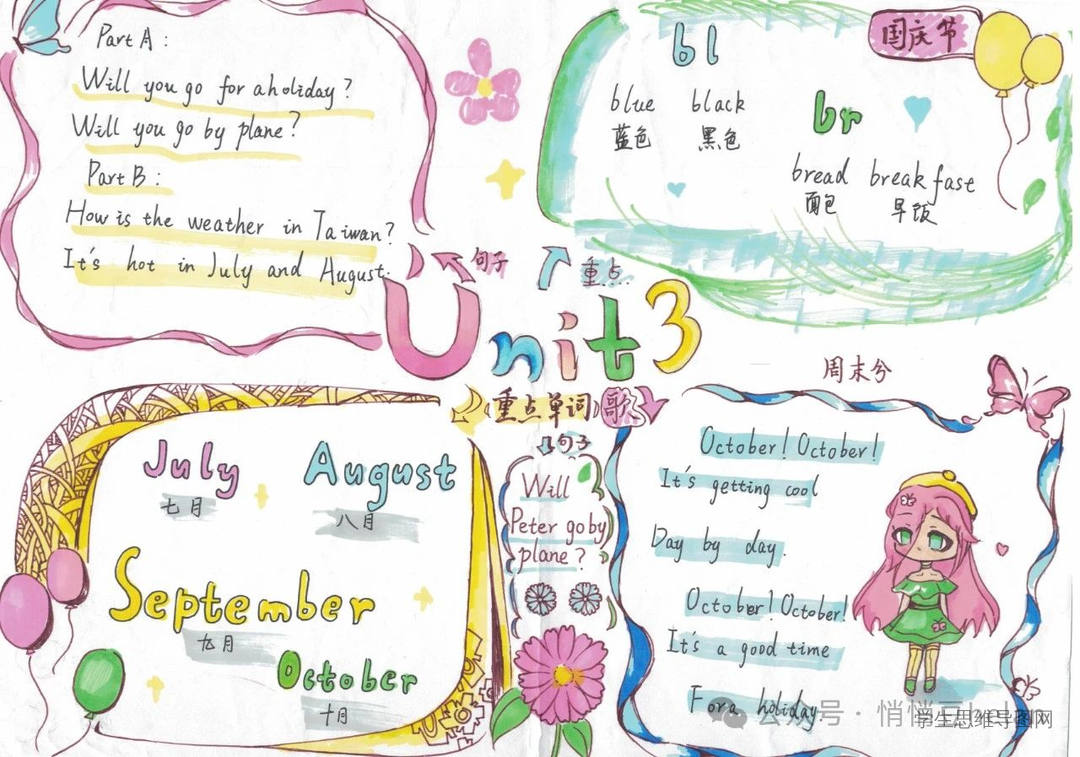 Part A :
Will you go for a holiday ?
Will you go by plane ?
Part B :
How is the weather in Taiwan?
It's hot in July and August.
句子
bl
blue black
蓝色 黑色
国庆节
br
bread breakfast
面包 早饭
重点
Unit 3
重点单词
歌
句子
Will
Peter go by
plane ?
July
七月
August
八月
September
九月
October
十月
周末兮
October! October!
It's getting cool
Day by day.
October! October!
It's a good time
For a holiday.
公众号 · 悄悄
学生思维导图网